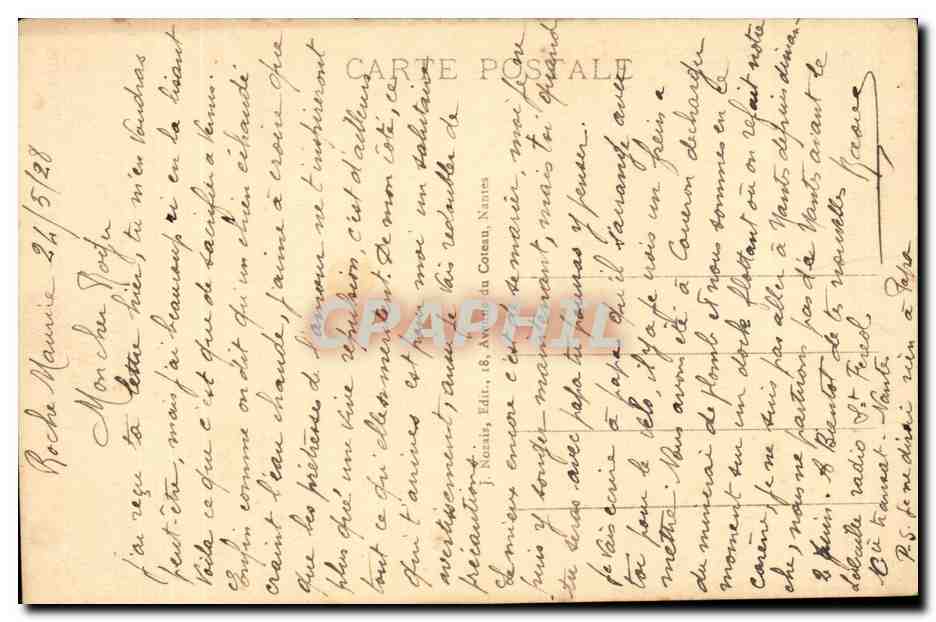 CARTE POSTALE
Roche Maurice 24/5/28
Mon cher Roger
j'ai reçu ta lettre hier, tu m'en voudras
peut-être, mais j'ai beaucoup ri en la lisant
Voila ce que c'est que de sacrifier à Venus.
Enfin comme on dit qu'un chien échaudé
craint l'eau chaude, j'aime à croire que
que les prêtresses de l'amour ne t'inspireront
plus qu'une vive répulsion c'est d'ailleurs
tout ce qu'elles méritent. De mon côté, ce
qui t'arrives est pour moi un salutaire
avertissement, aussi je vais redoubler de
précautions.
Le mieux encore c'est de se marier, moi je ne
puis y songer maintenant, mais toi quand
tu seras avec papa tu pourras y penser.
Je vais écrire à papa qu'il s'arrange avec
toi pour le vélo, il y a je crois un frein a
mettre. Nous avons été à Coueron décharger
du minerai de plomb et nous sommes en le
moment sur un dock flottant où on refait notre
carène, je ne suis pas aller à Nantes depuis diman-
che, nous ne partirons pas de Nantes avant le
2 juin. A Bientot de tes nouvelles
radio St Firel
Cie transat. Nantes
P.S. je ne dirai rien à Papa
J. Nozais, Edit., 18, Avenue du Coteau, Nantes
CPAPHIL